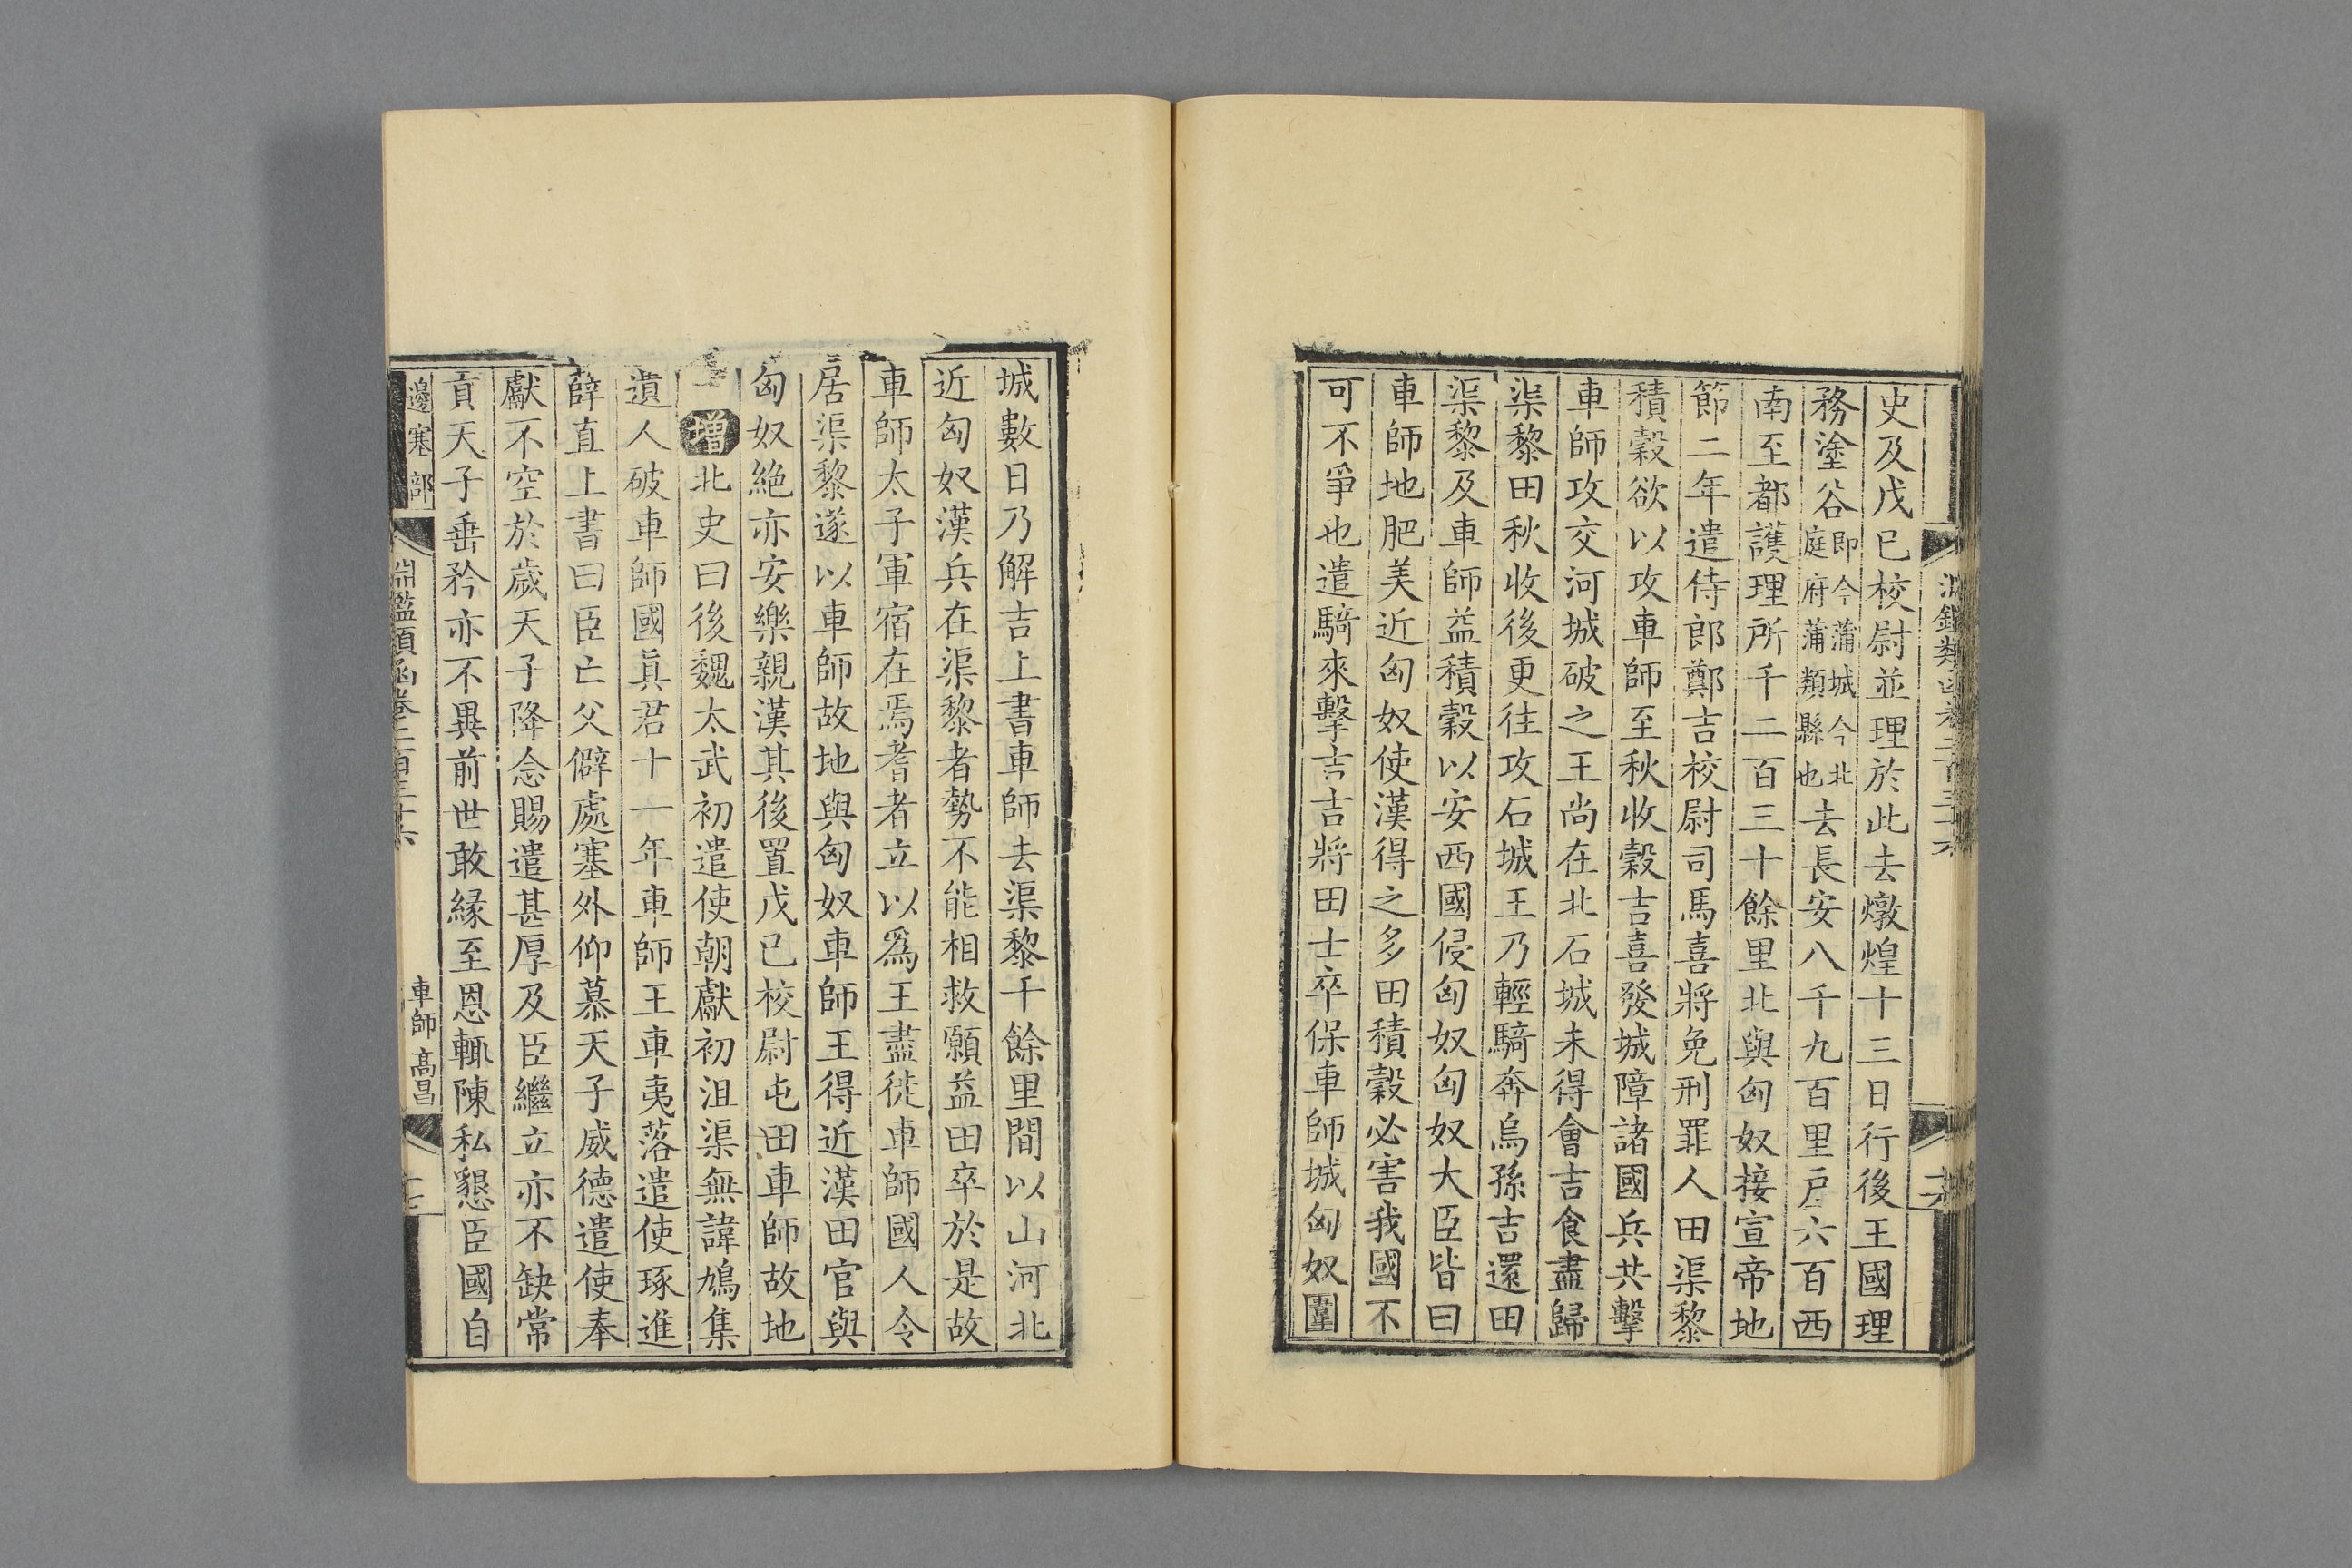 史及戊巳校尉並理於此去燉煌十三日行後王國理
務塗谷即今蒲城今北庭府蒲類縣也去長安八千九百里戶六百西
南至都護理所千二百三十餘里北與匈奴接宣帝地
節二年遣侍郎鄭吉校尉司馬喜將免刑罪人田渠黎
積穀欲以攻車師至秋收穀吉喜發城障諸國兵共擊
車師攻交河城破之王尚在北石城未得會吉食盡歸
渠黎田秋收後更往攻石城王乃輕騎奔烏孫吉還田
渠黎及車師益積穀以安西國侵匈奴匈奴大臣皆曰
車師地肥美近匈奴使漢得之多田積穀必害我國不
可不爭也遣騎來擊吉吉將田士卒保車師城匈奴圍
城數日乃解吉上書車師去渠黎千餘里間以山河北
近匈奴漢兵在渠黎者勢不能相救願益田卒於是故
車師太子軍宿在焉耆者立以爲王盡徙車師國人令
居渠黎遂以車師故地與匈奴車師王得近漢田官與
匈奴絶亦安樂親漢其後置戊已校尉屯田車師故地
增北史曰後魏太武初遣使朝獻初沮渠無諱鳩集
遺人破車師國眞君十一年車師王車夷落遣使琢進
薛直上書曰臣亡父僻處塞外仰慕天子威德遣使奉
獻不空於歲天子降念賜遣甚厚及臣繼立亦不缺常
貢天子垂矜亦不異前世敢緣至恩輒陳私懇臣國自
邊塞部
淵鑑類函卷二百三十六
車師 高昌